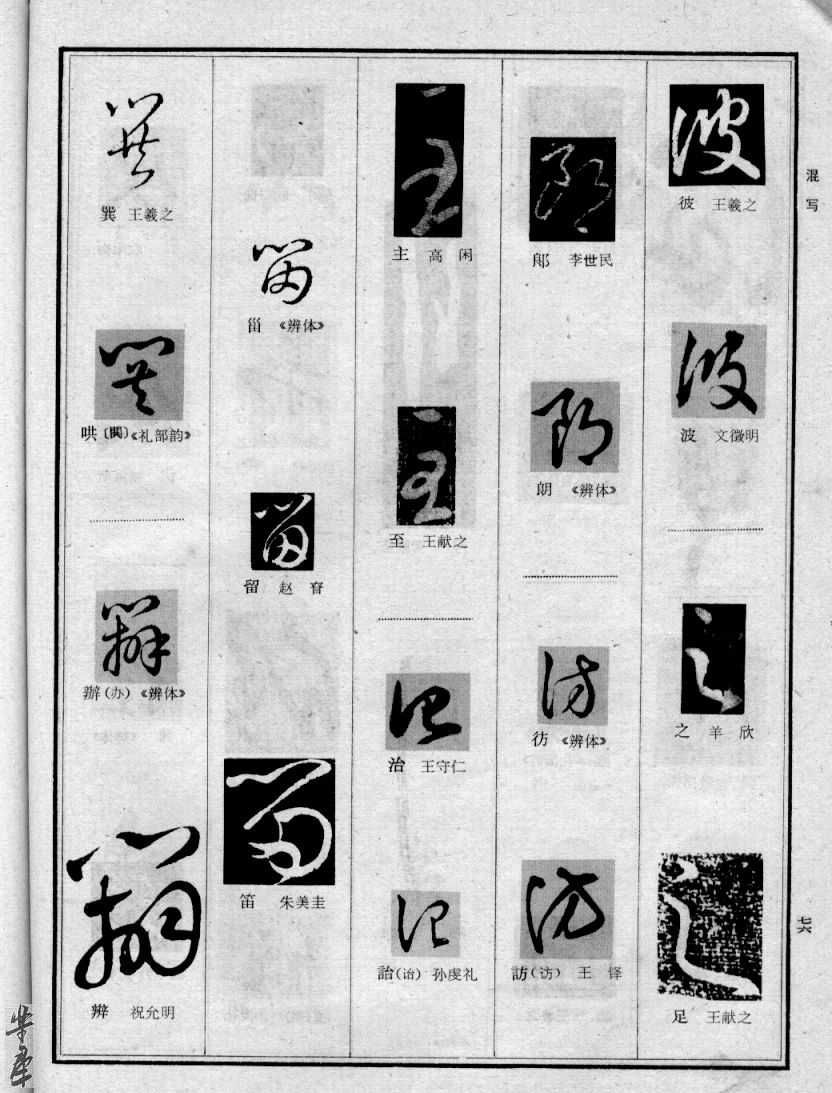 混写
彼 王羲之
波 文徵明
之 羊欣
足 王献之
郎 李世民
朗 《辨体》
彷 《辨体》
訪(访) 王铎
主 高闲
至 王献之
治 王守仁
詒(诒) 孙虔礼
甾 《辨体》
留 赵眘
笛 朱美圭
巽 王羲之
哄〔鬨〕《礼部韵》
辦(办)《辨体》
辨 祝允明
七六